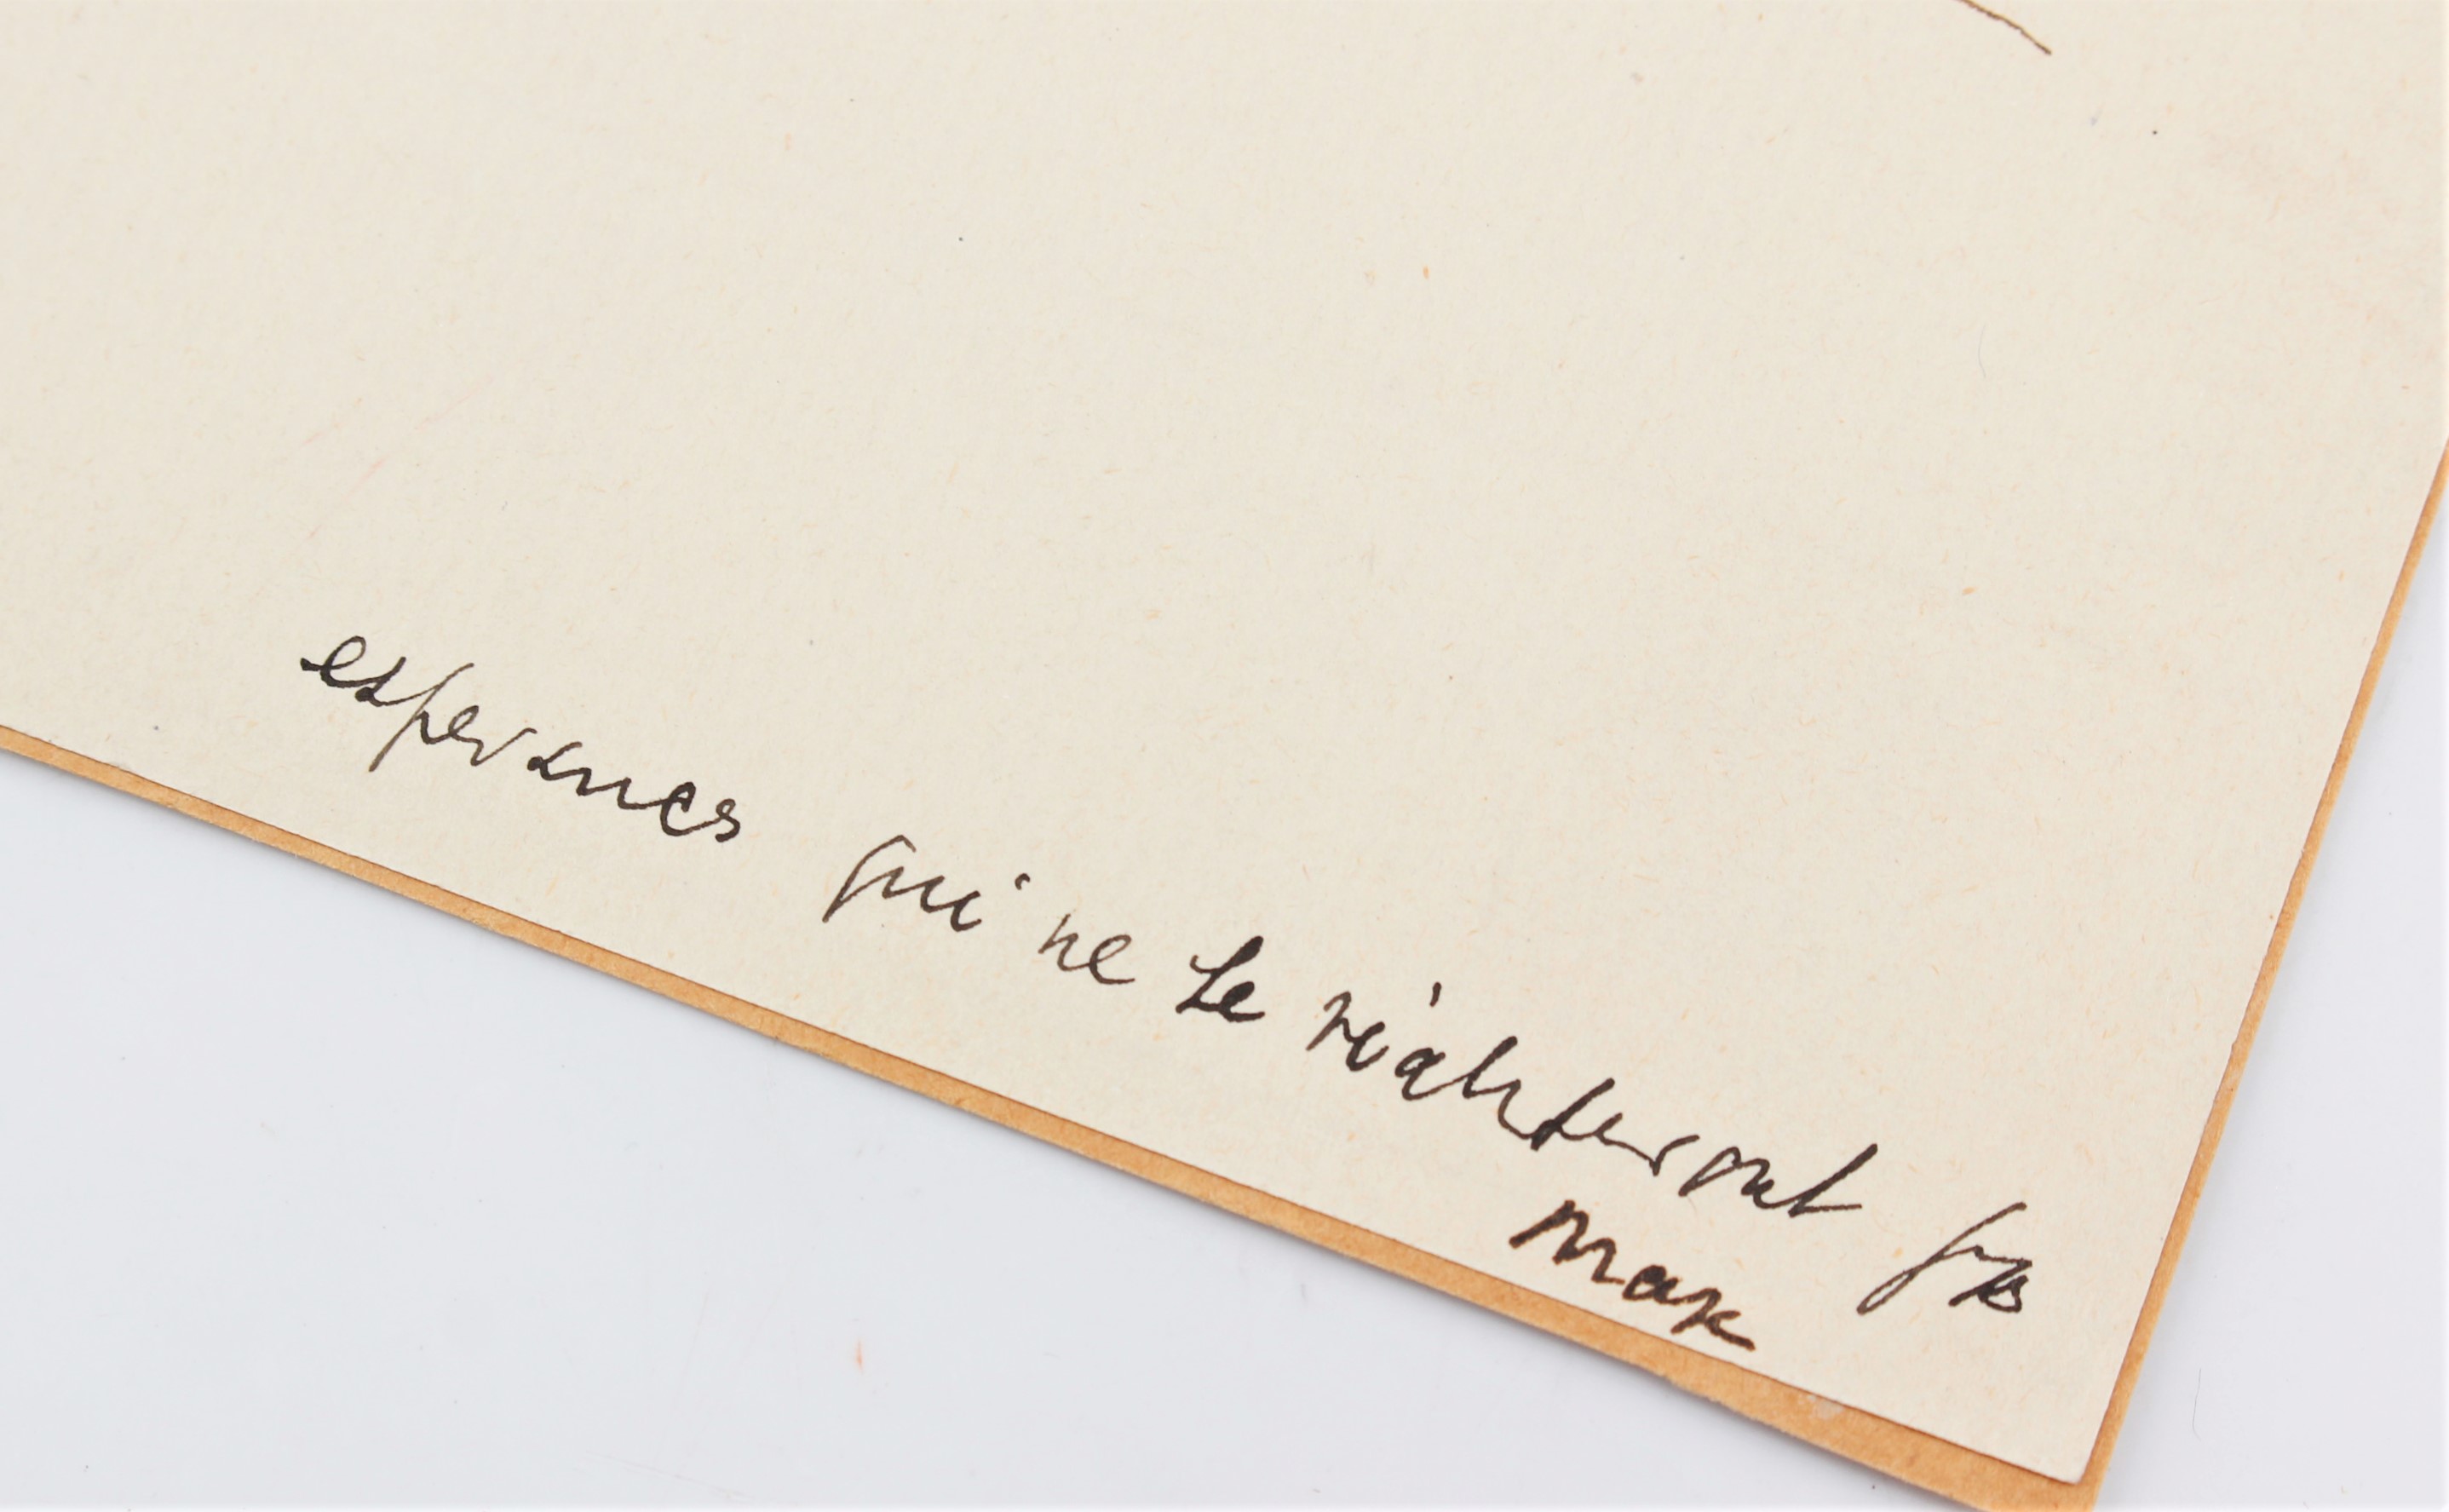 esperances qui ne se réaliseront pas
max